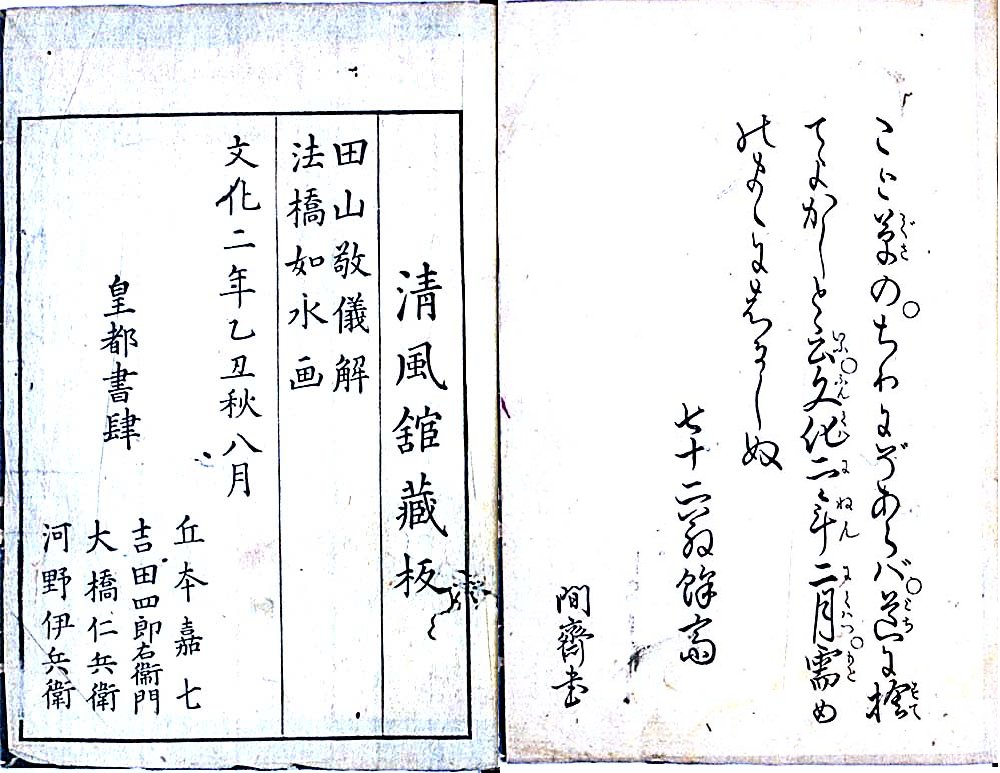 こと草のちりにぞあらバ道に捨
てよかしと云文化二年二月需め
のまゝに志るしぬ
七十二翁餘斎
間齋書
清風舘藏板
田山敬儀解
法橋如水画
文化二年乙丑秋八月
皇都書肆
丘本嘉七
吉田四郎右衞門
大橋仁兵衛
河野伊兵衛